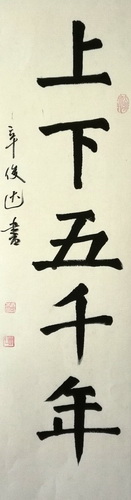 上下五千年
辛俊达書